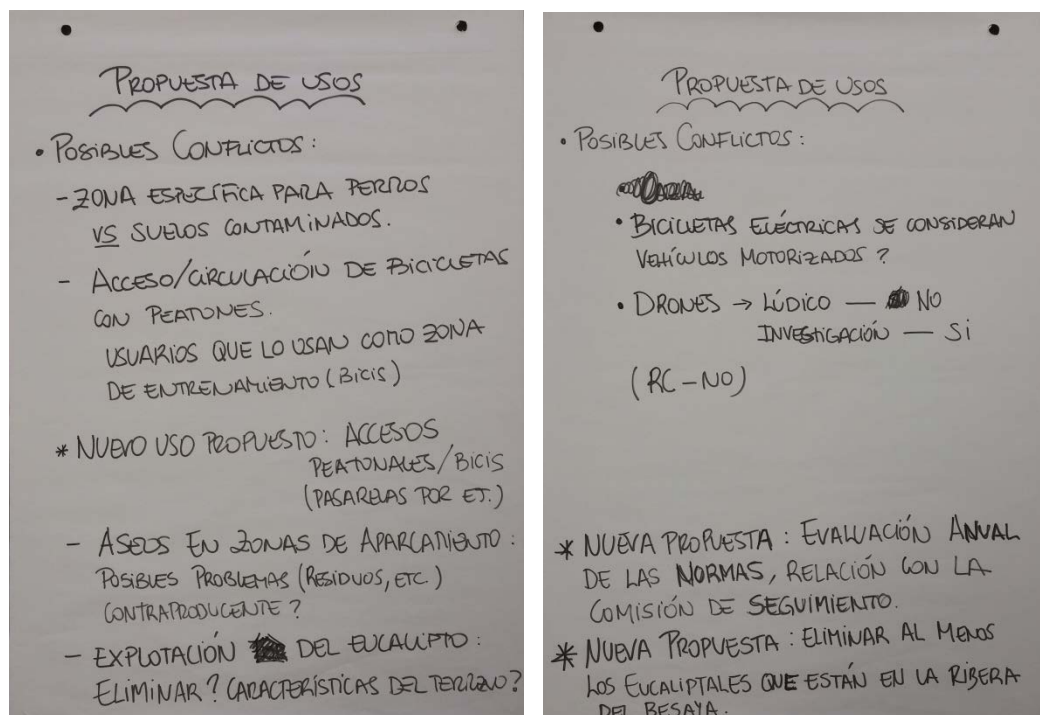 PROPUESTA DE USOS
• POSIBLES CONFLICTOS:
- ZONA ESPECÍFICA PARA PERROS
VS SUELOS CONTAMINADOS.
- ACCESO/CIRCULACIÓN DE BICICLETAS
CON PEATONES.
USUARIOS QUE LO USAN COMO ZONA
DE ENTRENAMIENTO (BICIS)
* NUEVO USO PROPUESTO: ACCESOS
PEATONALES/BICIS
(PASARELAS POR EJ.)
- ASEOS EN ZONAS DE APARCAMIENTO:
POSIBLES PROBLEMAS (RESIDUOS, ETC.)
CONTRAPRODUCENTE?
- EXPLOTACIÓN DEL EUCALIPTO:
ELIMINAR? CARACTERÍSTICAS DEL TERRENO?
PROPUESTA DE USOS
• POSIBLES CONFLICTOS:
• BICICLETAS ELÉCTRICAS SE CONSIDERAN
VEHÍCULOS MOTORIZADOS?
• DRONES → LÚDICO — NO
INVESTIGACIÓN — SI
(RC - NO)
* NUEVA PROPUESTA: EVALUACIÓN ANUAL
DE LAS NORMAS, RELACIÓN CON LA
COMISIÓN DE SEGUIMIENTO.
* NUEVA PROPUESTA: ELIMINAR AL MENOS
LOS EUCALIPTALES QUE ESTÁN EN LA RIBERA
DEL BESAYA.